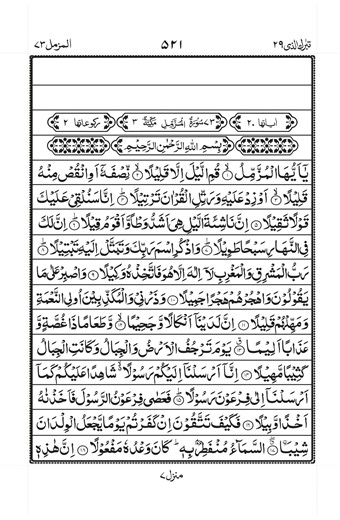 تبٰرك الذي ٢٩ ٥٢١ المزمل ٧٣
اٰیاتھا ٢٠ ٧٣ سُوْرَةُ الْمُزَّمِّلِ مَكِّيَّةٌ ٣ رکوعاتھا ٢
بِسْمِ اللهِ الرَّحْمٰنِ الرَّحِيْمِ
يٰۤاَيُّهَا الْمُزَّمِّلُ ۙ﴿١﴾ قُمِ الَّيْلَ اِلَّا قَلِيْلًا ۙ﴿٢﴾ نِّصْفَهٗۤ اَوِ انْقُصْ مِنْهُ
قَلِيْلًا ۙ﴿٣﴾ اَوْ زِدْ عَلَيْهِ وَرَتِّلِ الْقُرْاٰنَ تَرْتِيْلًا ؕ﴿٤﴾ اِنَّا سَنُلْقِيْ عَلَيْكَ
قَوْلًا ثَقِيْلًا ﴿٥﴾ اِنَّ نَاشِئَةَ الَّيْلِ هِيَ اَشَدُّ وَطْاً وَّاَقْوَمُ قِيْلًا ؕ﴿٦﴾ اِنَّ لَكَ
فِي النَّهَارِ سَبْحًا طَوِيْلًا ؕ﴿٧﴾ وَاذْكُرِ اسْمَ رَبِّكَ وَتَبَتَّلْ اِلَيْهِ تَبْتِيْلًا ؕ﴿٨﴾
رَبُّ الْمَشْرِقِ وَالْمَغْرِبِ لَاۤ اِلٰهَ اِلَّا هُوَ فَاتَّخِذْهُ وَكِيْلًا ﴿٩﴾ وَاصْبِرْ عَلٰى مَا
يَقُوْلُوْنَ وَاهْجُرْهُمْ هَجْرًا جَمِيْلًا ﴿١٠﴾ وَذَرْنِيْ وَالْمُكَذِّبِيْنَ اُولِي النَّعْمَةِ
وَمَهِّلْهُمْ قَلِيْلًا ﴿١١﴾ اِنَّ لَدَيْنَاۤ اَنْكَالًا وَّجَحِيْمًا ۙ﴿١٢﴾ وَّطَعَامًا ذَا غُصَّةٍ وَّ
عَذَابًا اَلِيْمًا ۗ﴿١٣﴾ يَوْمَ تَرْجُفُ الْاَرْضُ وَالْجِبَالُ وَكَانَتِ الْجِبَالُ
كَثِيْبًا مَّهِيْلًا ﴿١٤﴾ اِنَّاۤ اَرْسَلْنَاۤ اِلَيْكُمْ رَسُوْلًا ۙ شَاهِدًا عَلَيْكُمْ كَمَاۤ
اَرْسَلْنَاۤ اِلٰى فِرْعَوْنَ رَسُوْلًا ؕ﴿١٥﴾ فَعَصٰى فِرْعَوْنُ الرَّسُوْلَ فَاَخَذْنٰهُ
اَخْذًا وَّبِيْلًا ﴿١٦﴾ فَكَيْفَ تَتَّقُوْنَ اِنْ كَفَرْتُمْ يَوْمًا يَّجْعَلُ الْوِلْدَانَ
شِيْبَا ۗ﴿١٧﴾ ۨالسَّمَآءُ مُنْفَطِرٌۢ بِهٖ ؕ كَانَ وَعْدُهٗ مَفْعُوْلًا ﴿١٨﴾ اِنَّ هٰذِهٖ
منزل ٧